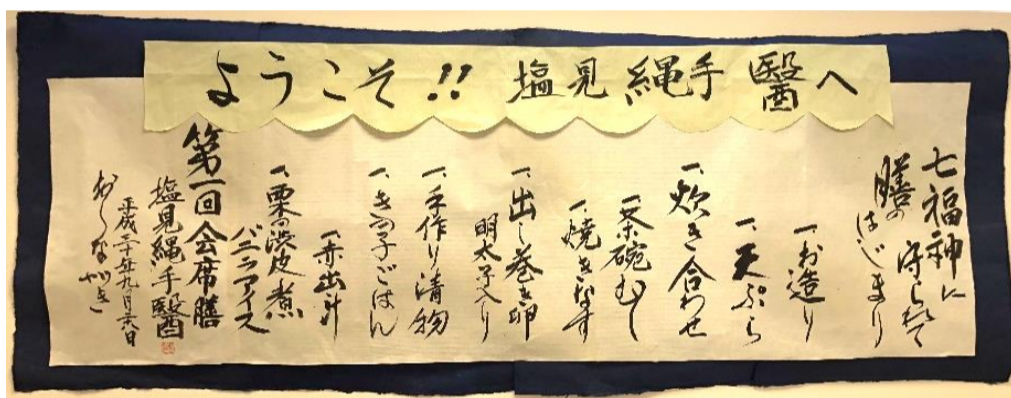 ようこそ!! 塩見縄手 醫へ
七福神に守られて
膳のはじまり
一、お造り
一、天ぷら
一、炊き合わせ
一、茶碗むし
一、焼きなす
一、出し巻き卵
明太子入り
一、手作り漬物
一、きの子ごはん
一、赤出汁
一、栗の渋皮煮
バニラアイス
第一回会席膳
塩見縄手醫
平成二十年九月
おしながき